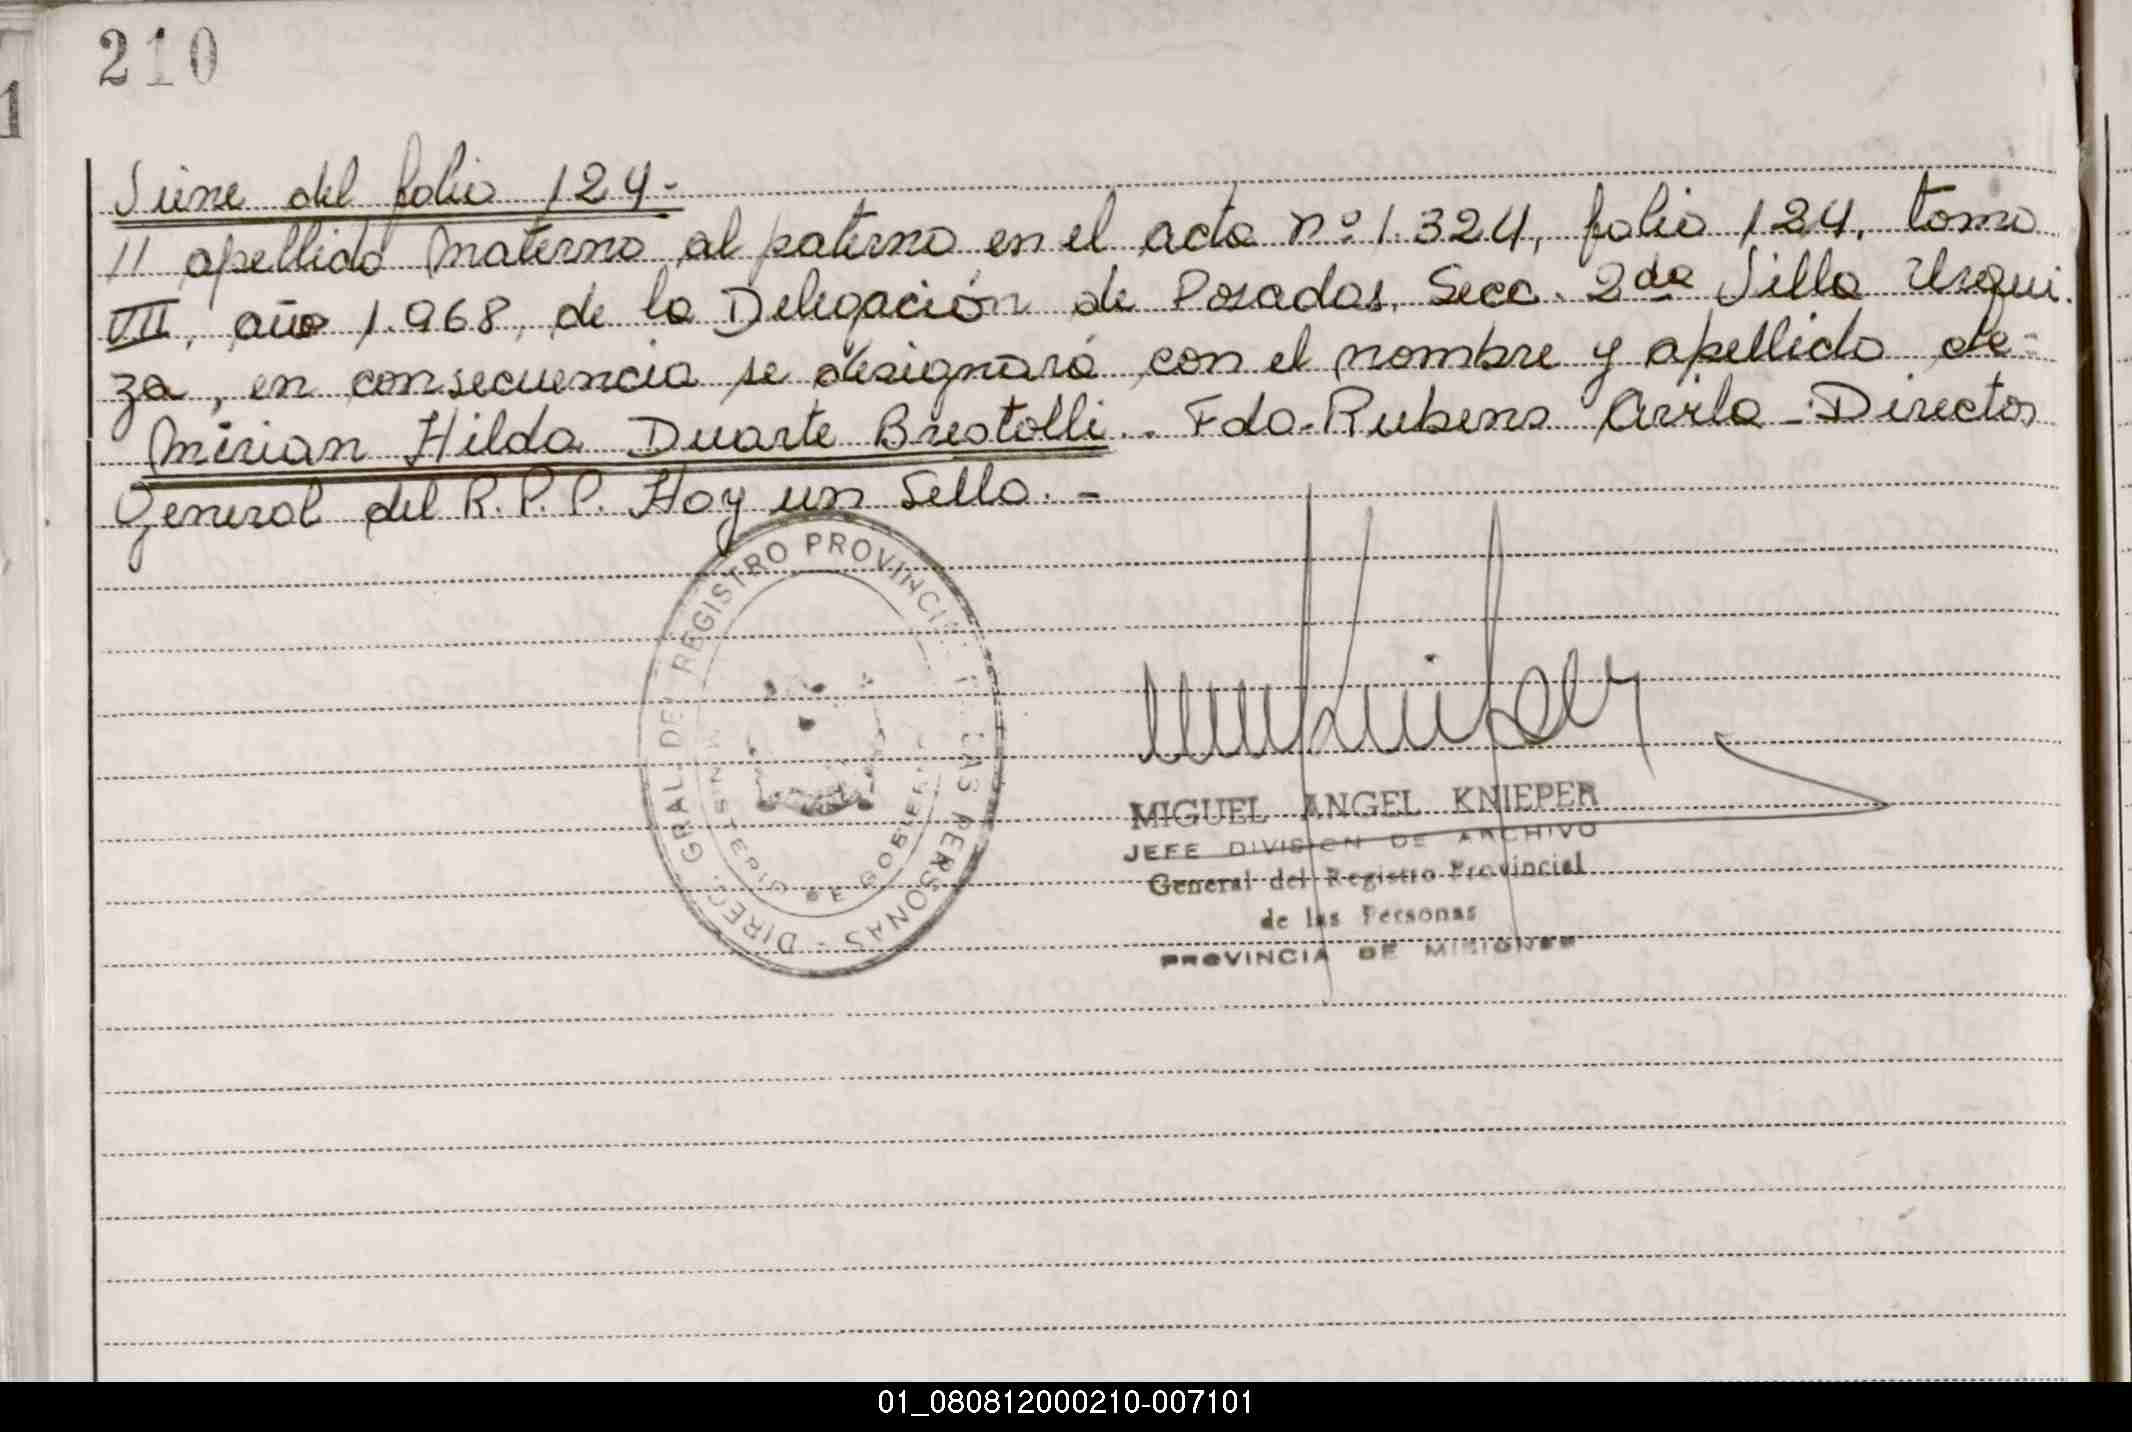 210
1
Viene del folio 124-
// apellido materno al paterno en el acta nº 1.324, folio 124, tomo
VII, año 1.968, de la Delegación de Posadas, Secc. 2da Villa Urqui.
za, en consecuencia se designará con el nombre y apellido de-
Mirian Hilda Duarte Brestolli.. Fdo. Rubens Avila - Director
General del R.P.P. Hay un Sello. -
DIREC. GRAL. DEL REGISTRO PROVINCIAL DE LAS PERSONAS -
MINISTERIO DE GOBIERNO
MIGUEL ANGEL KNIEPER
JEFE DIVISION DE ARCHIVO
General del Registro Provincial
de las Personas
PROVINCIA DE MISIONES
01_080812000210-007101